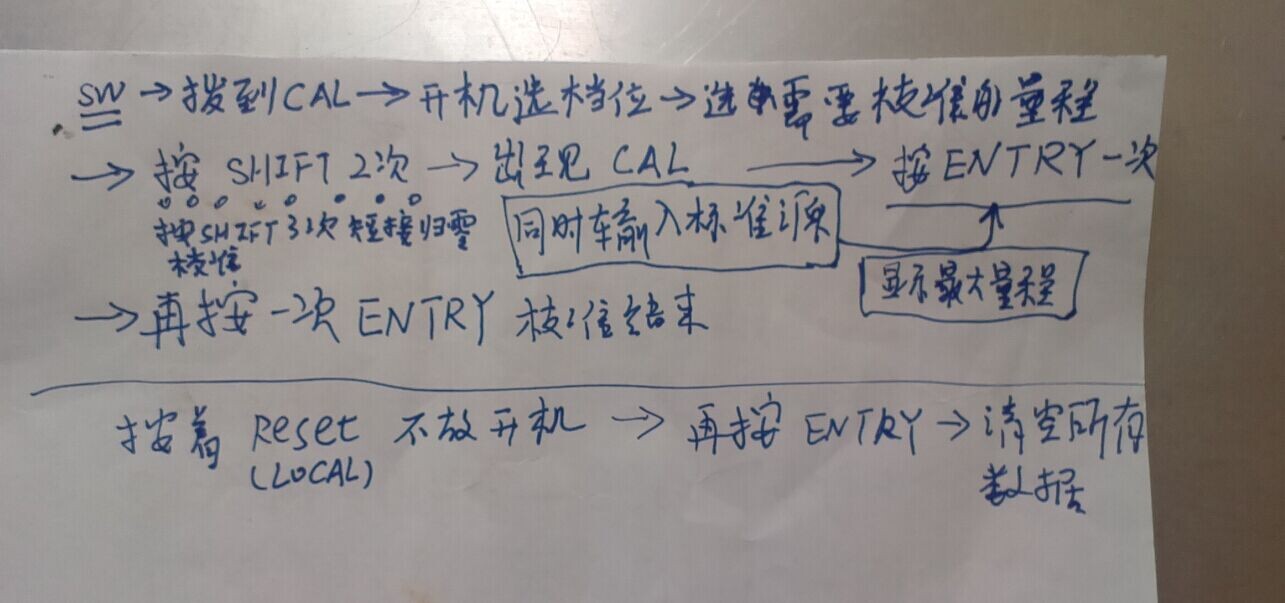 SW → 拨到CAL → 开机选档位 → 选需要校准的量程
→ 按 SHIFT 2次 → 出现 CAL → 按ENTRY一次
按SHIFT 3次 短接归零
校准
同时输入标准源
显示最大量程
→ 再按一次 ENTRY 校准结束
按着 Reset 不放开机 → 再按 ENTRY → 清空所有
(LOCAL)
数据